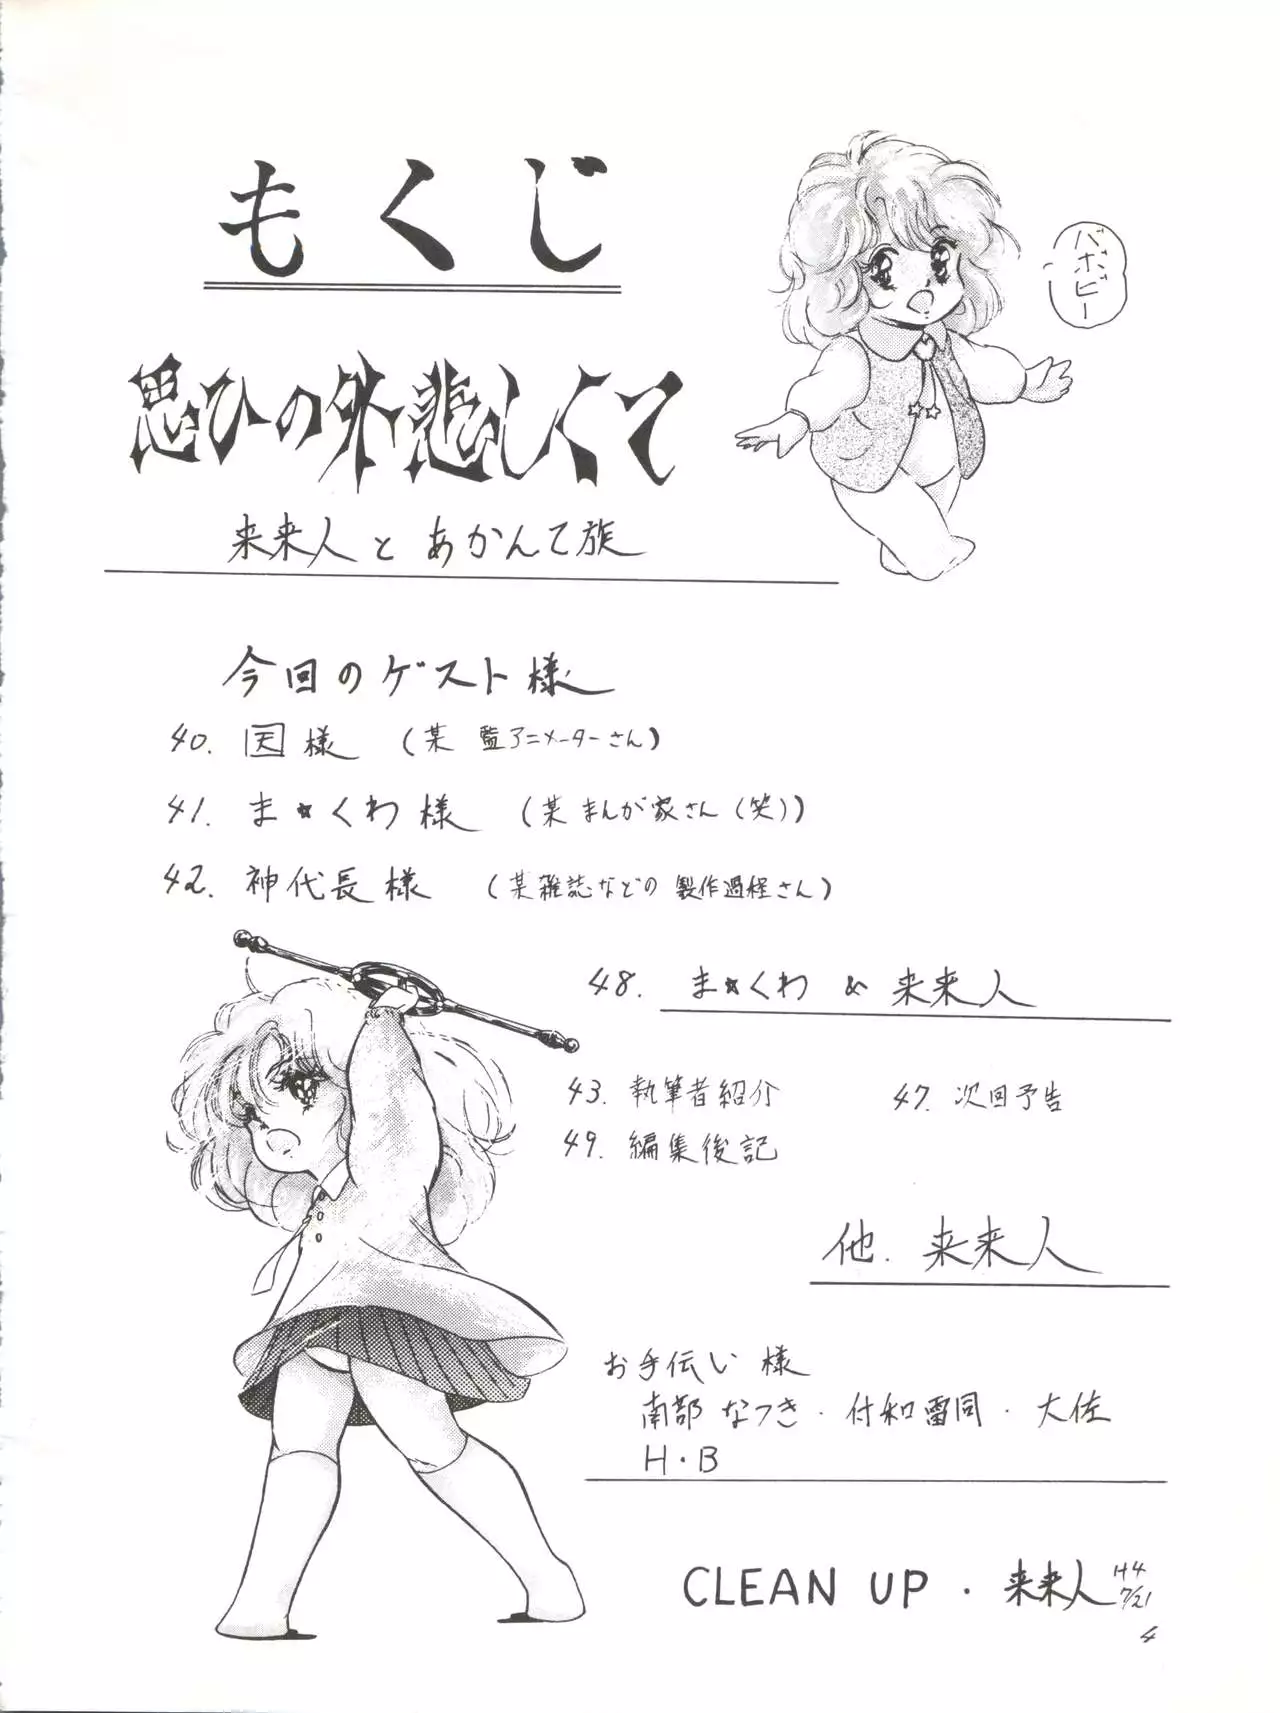 もくじ
バボビー
思ひの外悲しくて
来来人とあかんて族
今回のゲスト様
40. 因様 (某 監アニメーターさん)
41. ま☆くわ様 (某 まんが家さん (笑))
42. 神代長様 (某雑誌などの 製作過程さん)
48. ま☆くわ & 来来人
43. 執筆者紹介 47. 次回予告
49. 編集後記
他. 来来人
お手伝い様
南部 なつき・付和雷同・大佐
H・B
CLEAN UP・来来人 H4 7/21
4